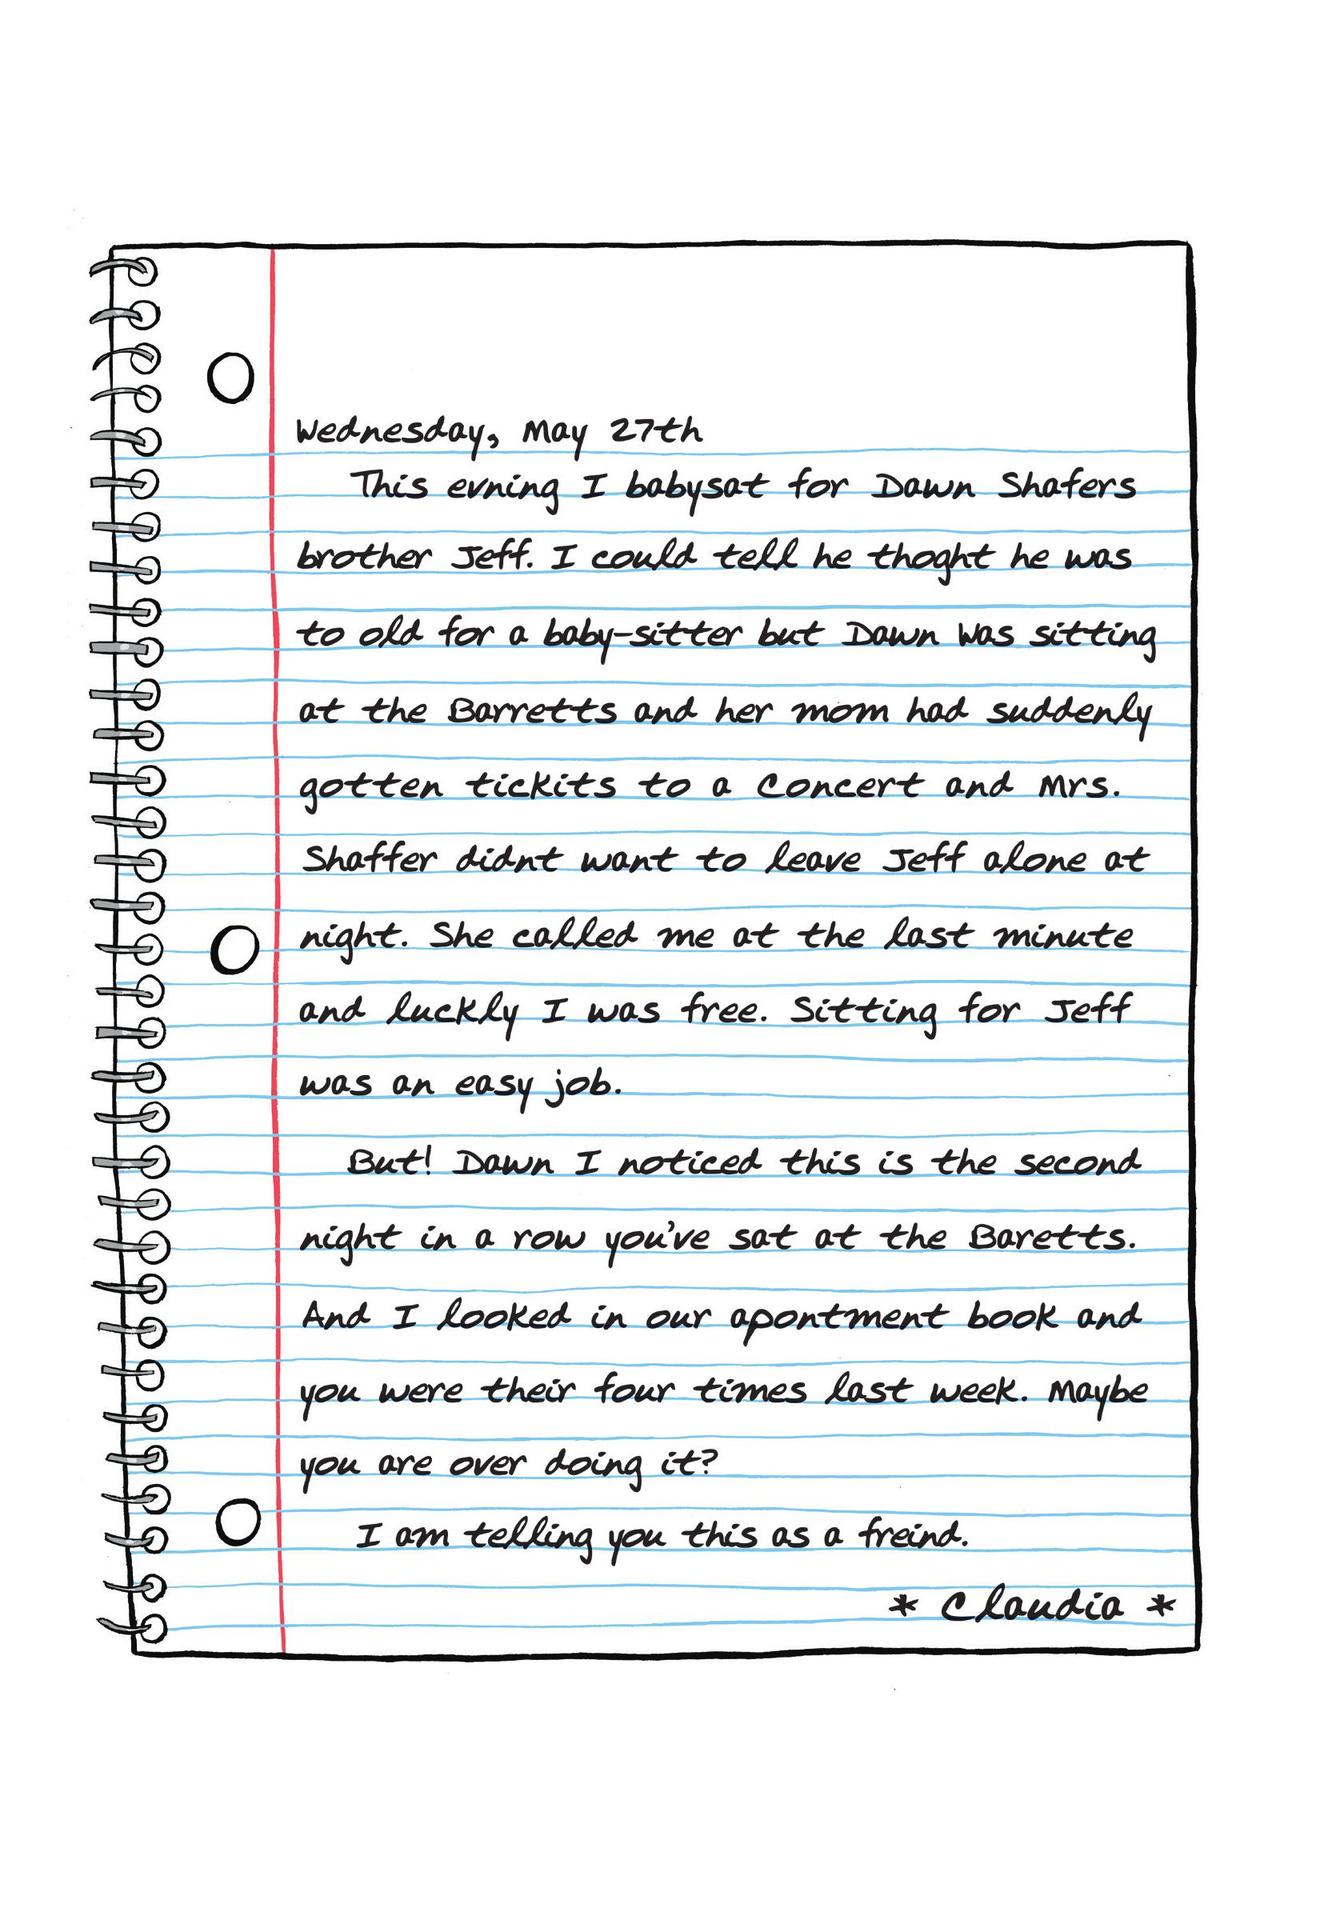 Wednesday, May 27th
This evning I babysat for Dawn Shafers
brother Jeff. I could tell he thoght he was
to old for a baby-sitter but Dawn was sitting
at the Barretts and her mom had suddenly
gotten tickits to a concert and Mrs.
Shaffer didnt want to leave Jeff alone at
night. She called me at the last minute
and luckly I was free. Sitting for Jeff
was an easy job.
But! Dawn I noticed this is the second
night in a row you've sat at the Baretts.
And I looked in our apontment book and
you were their four times last week. Maybe
you are over doing it?
I am telling you this as a freind.
* Claudia *